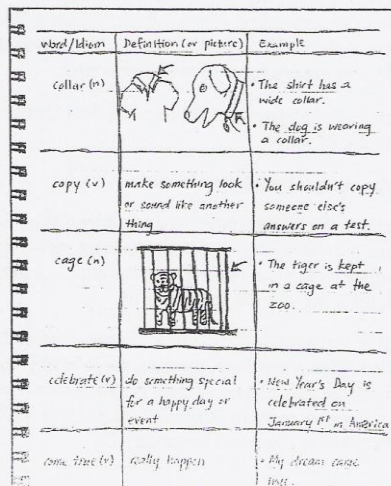 Word/Idiom Definition (or picture) Example
collar (n)
• The shirt has a
wide collar.
• The dog is wearing
a collar.
copy (v) make something look • You shouldn't copy
or sound like another someone else's
thing answers on a test.
cage (n) • The tiger is kept
in a cage at the
zoo.
celebrate (v) do something special • New Year's Day is
for a happy day or celebrated on
event January 1st in America
come true (v) really happen • My dream came
true.